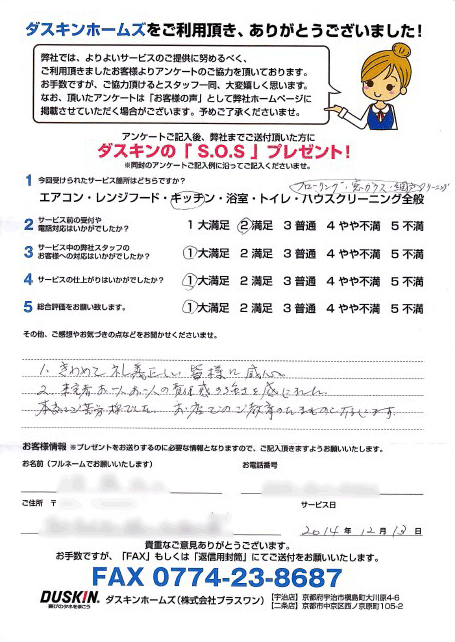 ダスキンホームズをご利用頂き、ありがとうございました!
弊社では、よりよいサービスのご提供に努めるべく、
ご利用頂きましたお客様よりアンケートのご協力を頂いております。
お手数ですが、ご協力頂けるとスタッフ一同、大変嬉しく思います。
なお、頂いたアンケートは「お客様の声」として弊社ホームページに
掲載させていただく場合がございます。予めご了承くださいませ。
アンケートご記入後、弊社までご送付頂いた方に
ダスキンの「 S.O.S 」プレゼント!
※同封のアンケートご記入例に沿ってご記入くださいませ。
1 今回受けられたサービス箇所はどちらですか?
フローリング・窓ガラス・網戸クリーニング
エアコン・レンジフード・キッチン・浴室・トイレ・ハウスクリーニング全般
2 サービス前の受付や
電話対応はいかがでしたか?
1 大満足 2 満足 3 普通 4 やや不満 5 不満
3 サービス中の弊社スタッフの
お客様への対応はいかがでしたか?
1 大満足 2 満足 3 普通 4 やや不満 5 不満
4 サービスの仕上がりはいかがでしたか?
1 大満足 2 満足 3 普通 4 やや不満 5 不満
5 総合評価をお願い致します。
1 大満足 2 満足 3 普通 4 やや不満 5 不満
その他、ご感想やお気づきの点などをお聞かせくださいませ。
1. きわめて礼義正しい皆様に感心。
2. お一人お一人の責任感の強さを感じました。
お店でのご教育の
お客様情報 ※プレゼントをお送りするのに必要な情報となりますので、ご記入頂きますようお願いいたします。
お名前(フルネームでお願いいたします) お電話番号
ご住所 〒 サービス日
2014年 12月 13日
貴重なご意見ありがとうございます。
お手数ですが、「FAX」もしくは「返信用封筒」にてご送付をお願いいたします。
FAX 0774-23-8687
DUSKIN 喜びのタネをまこう
ダスキンホームズ(株式会社プラスワン)
【宇治店】京都府宇治市槇島町大川原4-6
【二条店】京都市中京区西ノ京原町105-2